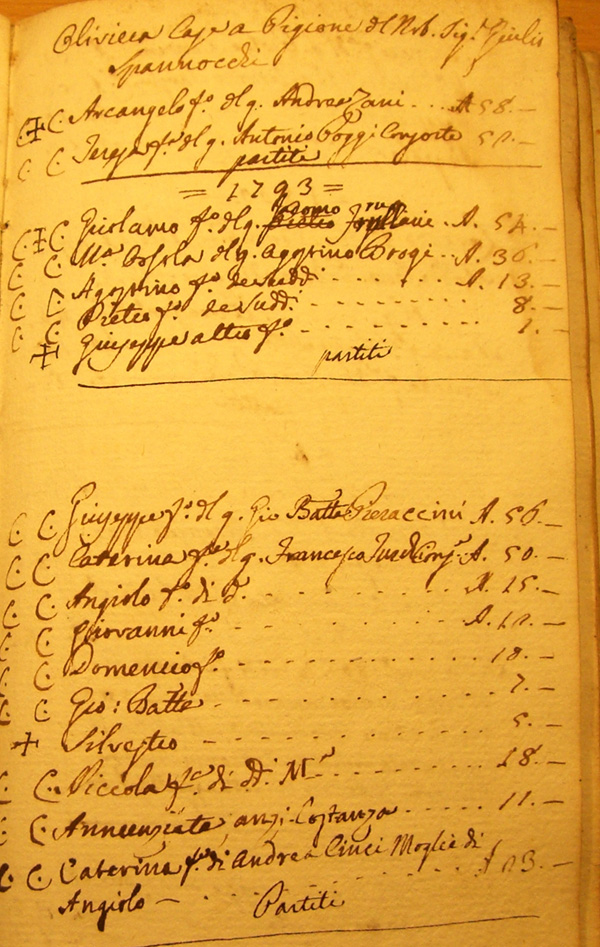 Oliviera Casa a Pigione del Nob. Sig.r Giulio
Spannocchi
C. Arcangelo fo. del q. Andrea Zani . . . A. 58. —
C. C. Teresa fa. del q. Antonio Poggi Consorte 50. —
partiti
= 1793 =
C. C. Girolamo fo. del q. A. 54. —
C. C. Ma. Orsola del q. Agostino Brogi . . A. 36. —
C. C. Agostino fo. de sudd.i . . . . A. 13. —
C. C. Pietro fo. de sudd.i . . . . . . 8. —
Giuseppe altro fo. . . . . . . 1. —
partiti
C. C. Giuseppe fo. del q. Gio Batta Pieraccini A. 56. —
C. C. Caterina fa. del q. Francesco A. 50. —
C. C. Angiolo fo. di d. . . . . . A. 25. —
C. C. Giovanni fo. . . . . . . A. 12. —
C. C. Domenico fo. . . . . . . 10. —
C. C. Gio: Batta . . . . . . 7. —
Silvestro . . . . . . 5. —
C. C. Niccola fo. di di. Ma. . . . . . 18. —
C. C. Annunziata, anzi Costanza . . . . 11. —
C. C. Caterina fa. di Andrea Cinci Moglie di
Angiolo — . . . . . . 23. —
Partiti